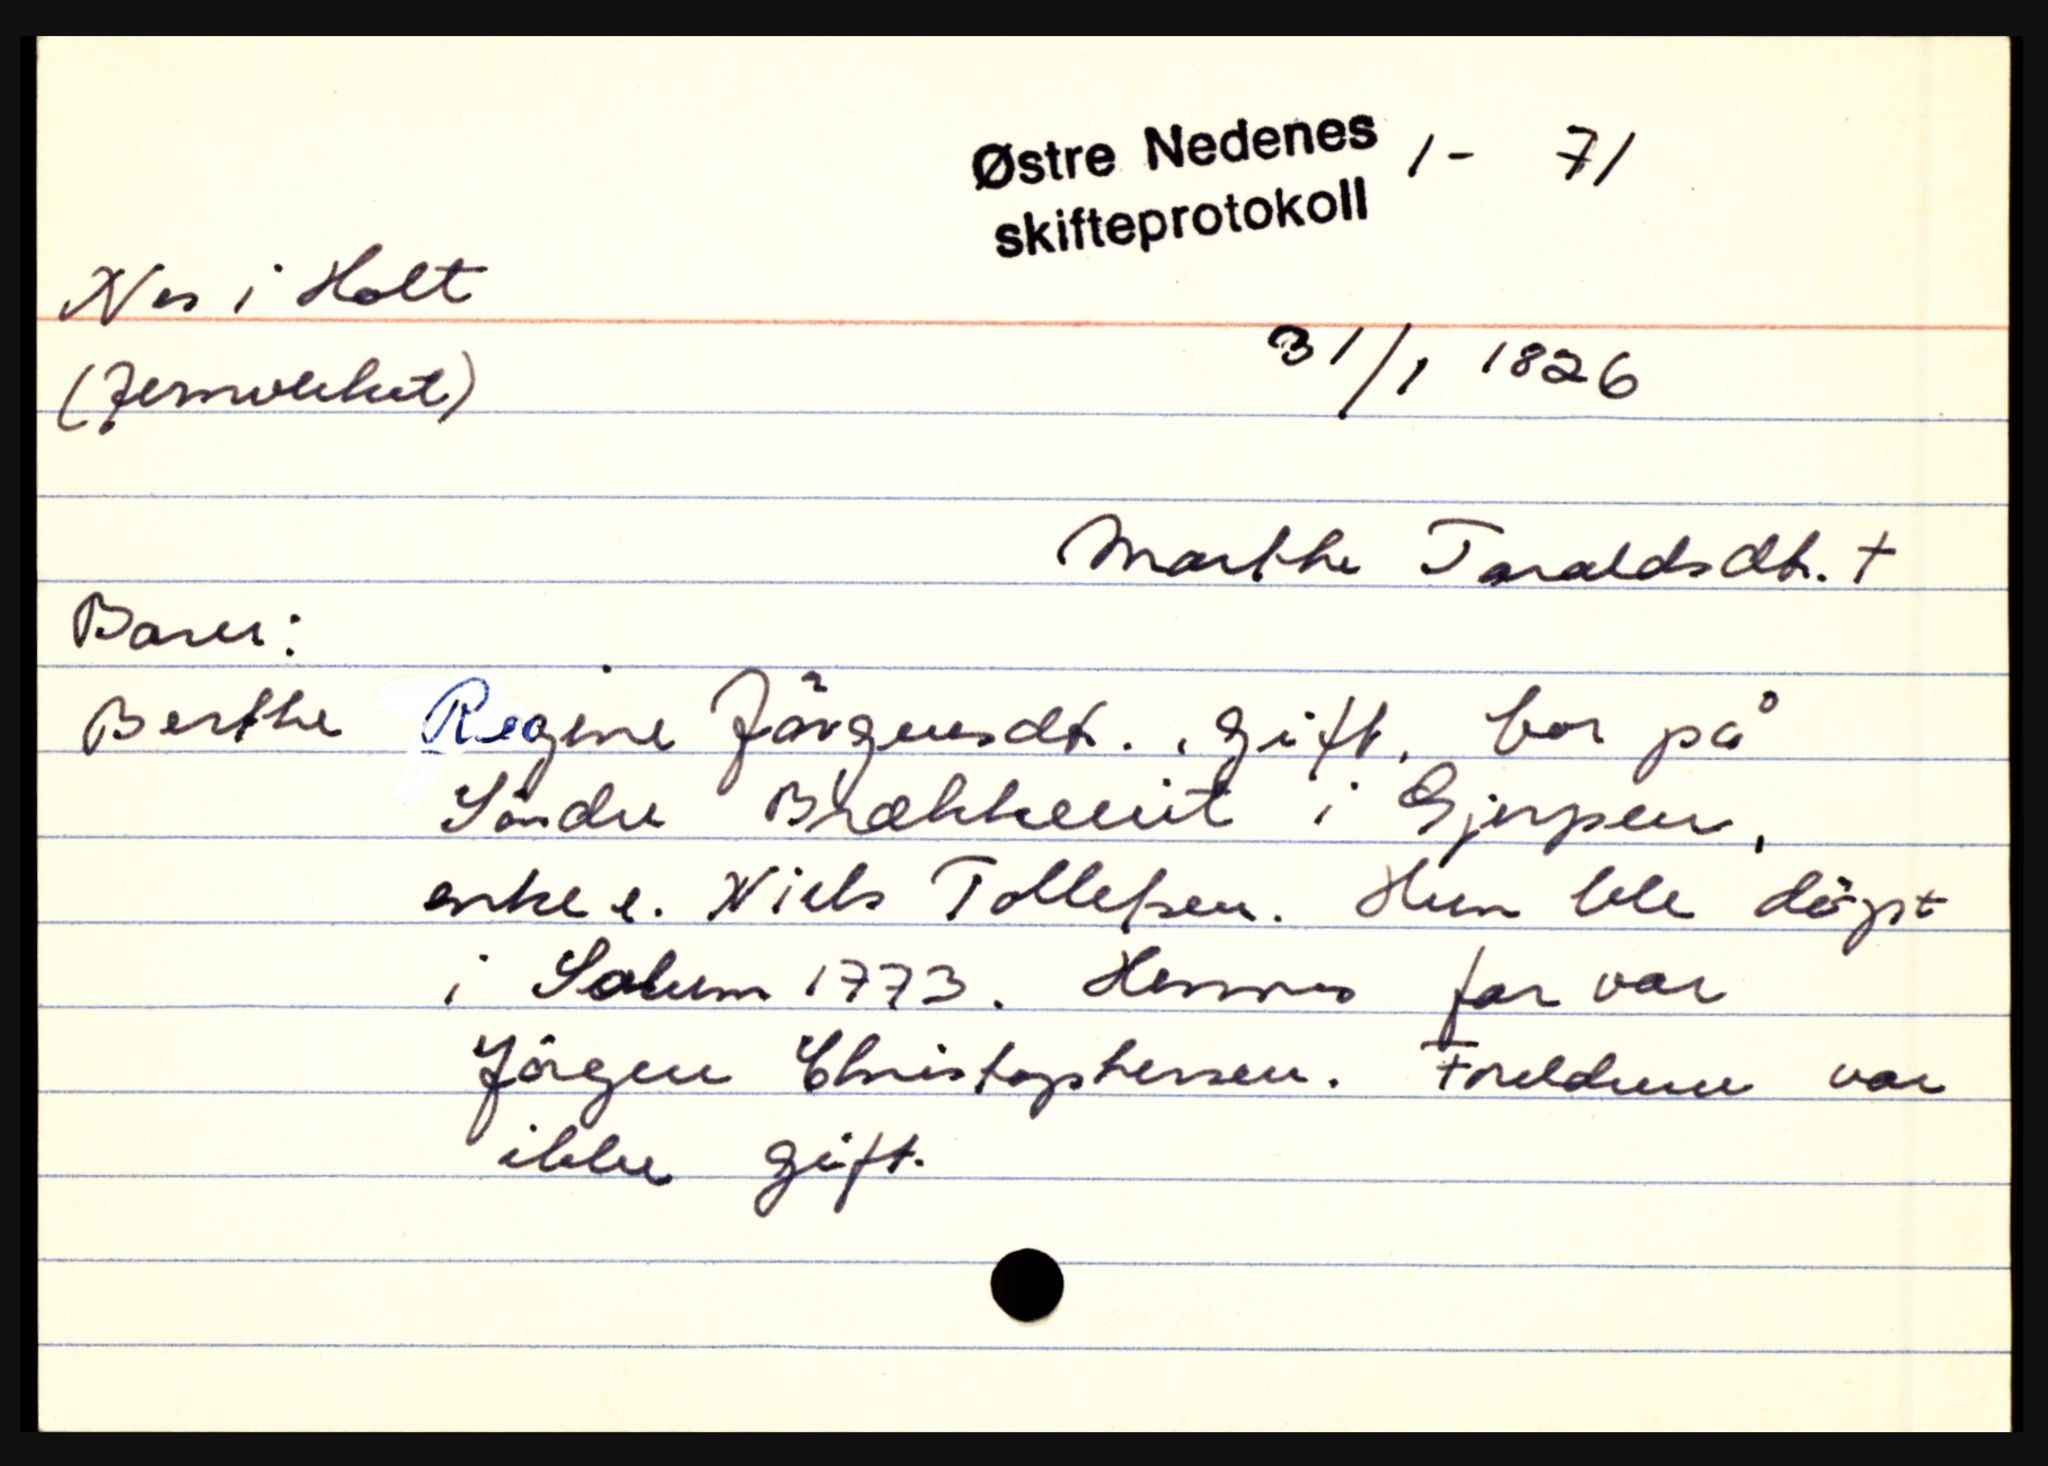 Østre Nedenes 1 - 71
skifteprotokoll
Nes i Holt
(Jernverket)
31/1 1826
Marthe Taraldsdt. +
Barn:
Berthe Regine Jörgensdt., gift, bor på
Söndre Brækkeeiet i Gjerpen,
enke e. Niels Tollefsen. Hun ble döpt
i Solum 1773. Hennes far var
Jörgen Christophersen. Foreldrene var
ikke gift.